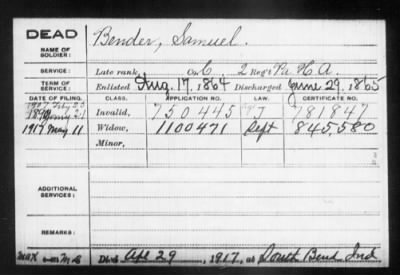 DEAD
NAME OF SOLDIER: Bender, Samuel.
SERVICE: Late rank, Co C 2 Reg't Pa H A.
TERM OF SERVICE: Enlisted Aug. 17, 1864 Discharged June 29, 1865
DATE OF FILING. CLASS. APPLICATION NO. LAW. CERTIFICATE NO.
Invalid, 750445 781847
1917 May 11 Widow, 1100471 Sept 845,580
Minor,
ADDITIONAL SERVICES:
REMARKS:
Died Apr 29, 1917, at South Bend Ind